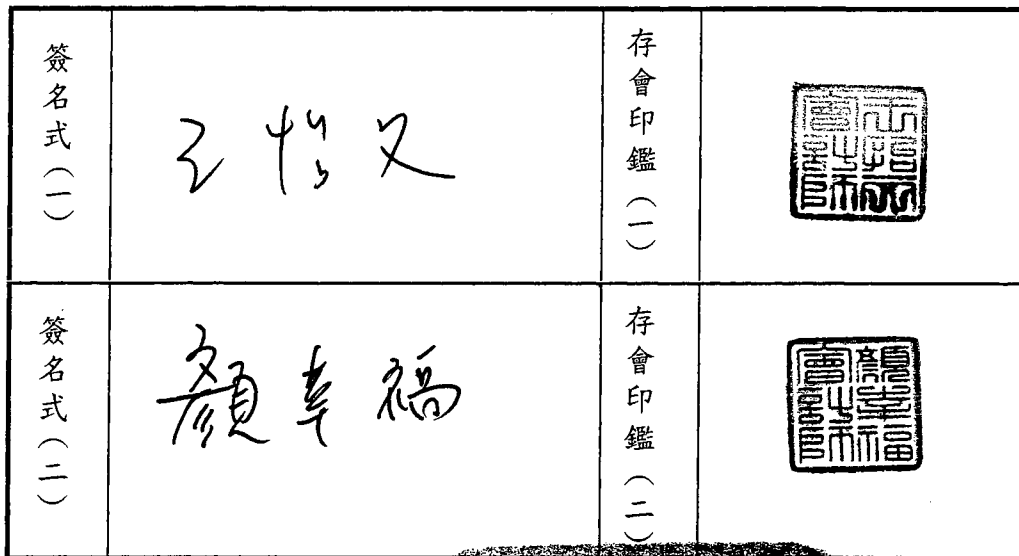 簽名式（一）
王怡文
存會印鑑（一）
簽名式（二）
顏幸福
存會印鑑（二）
顏幸福
會計師